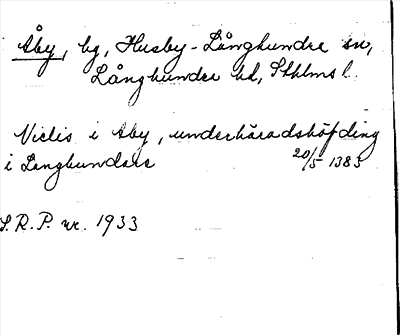 Åby, bg, Husby-Långhundra sn,
Långhundra hd, Sthlms l.
Niclis i Aby, underhäradshöfding
i Langhundare 20/5 1383
S.R.P. nr. 1933